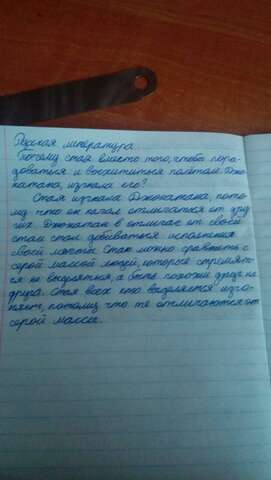 Русская литература
Почему стая вместо того, чтобы пора-
доваться и восхититься полётом Джо-
натана, изгнала его?
Стая изгнала Джонатана, пото-
му что он начал отличаться от дру-
гих. Джонатан в отличае от своей
стаи стал добиваться исполнения
своей мечты. Стаю можно сравнить с
серой массой людей, которые стремят-
ся не выделятся, а быть похожи друг на
друга. Стая всех кто выделяется изго-
няет, потому что те отличаются от
серой массы.